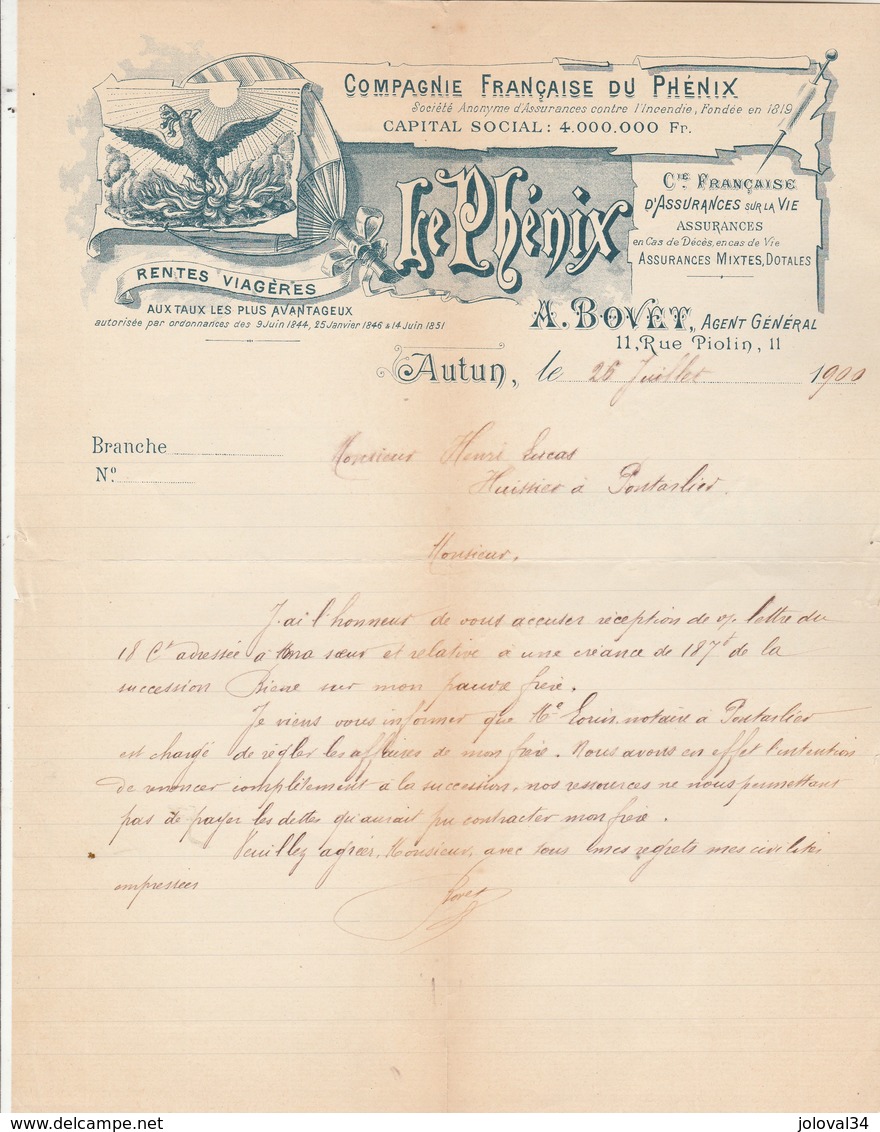 COMPAGNIE FRANÇAISE DU PHÉNIX
Société Anonyme d'Assurances contre l'Incendie, Fondée en 1819
CAPITAL SOCIAL: 4.000.000 Fr.
Le Phénix
Cie FRANÇAISE
D'ASSURANCES SUR LA VIE
ASSURANCES
en Cas de Décès, en cas de Vie
ASSURANCES MIXTES, DOTALES
RENTES VIAGÈRES
AUX TAUX LES PLUS AVANTAGEUX
autorisée par ordonnances des 9 Juin 1844, 25 Janvier 1846 & 14 Juin 1851
A. BOVET, AGENT GÉNÉRAL
11, Rue Piolin, 11
Autun, le 26 Juillet 1900
Branche
No
Monsieur Henri Lucas
Huissier à Pontarlier.
Monsieur,
J'ai l'honneur de vous accuser réception de v/. lettre du
18 Ct adressée à ma sœur et relative à une créance de 187f de la
succession sur mon pauvre frère.
Je viens vous informer que Me notaire à Pontarlier
est chargé de régler les affaires de mon frère. Nous avons en effet l'intention
de renoncer complètement à la succession, nos ressources ne nous permettant
pas de payer les dettes qu'aurait pu contracter mon frère.
Veuillez agréer, Monsieur, avec tous mes regrets mes civilités
empressées
Bovet
delcampe.net
joloval34